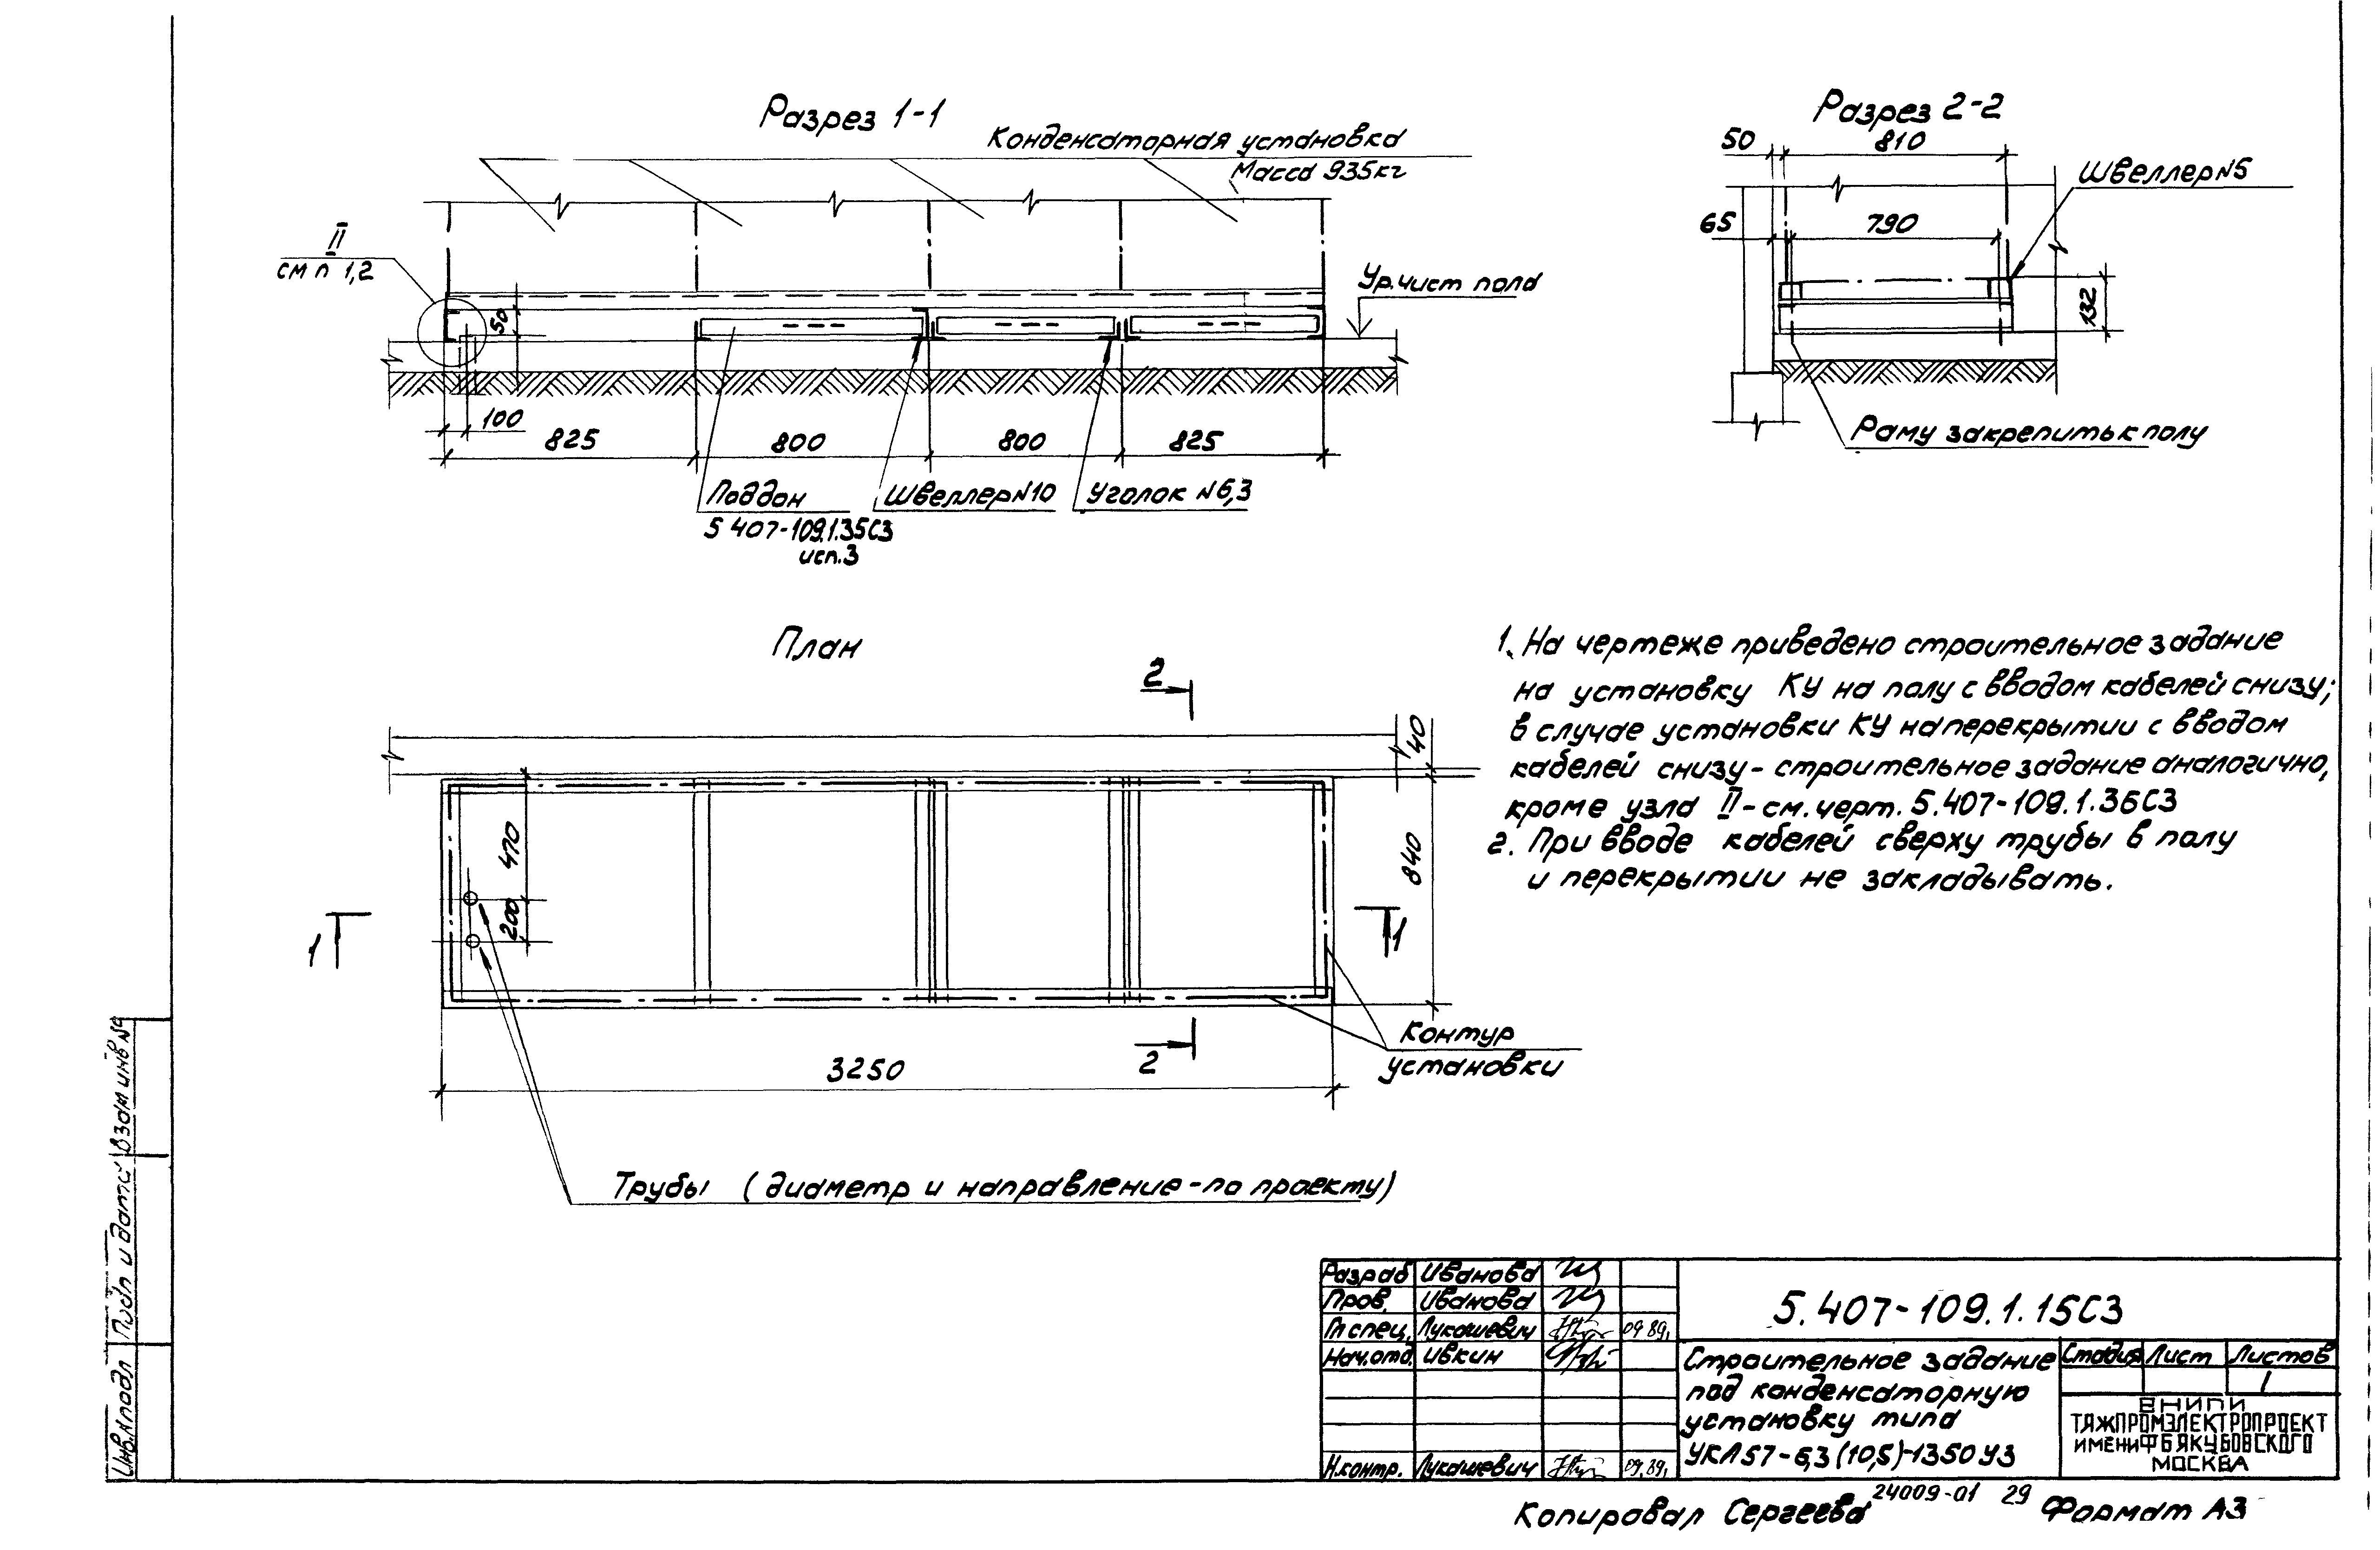 Разрез 1-1
Конденсаторная установка
Масса 935кг
II
см п 1,2
50
Ур.чист пола
100
825
800
800
825
Поддон
5 407-109.1.35СЗ
исп.3
Швеллер N10
Уголок N6,3
Разрез 2-2
50
810
Швеллер N5
65
790
132
Раму закрепить к полу
План
2
40
470
200
840
1
1
2
3250
Контур
установки
Трубы (диаметр и направление-по проекту)
1. На чертеже приведено строительное задание
на установку КУ на полу с вводом кабелей снизу;
в случае установки КУ на перекрытии с вводом
кабелей снизу-строительное задание аналогично,
кроме узла II-см.черт. 5.407-109.1.36СЗ
2. При вводе кабелей сверху трубы в полу
и перекрытии не закладывать.
Инв.N подл
Подп и дата
Взам инв N
Разраб Иванова
Пров. Иванова
Гл спец. Лукашевич 09 89.
Нач.отд. Ивкин
Н.контр. Лукашевич 09.89.
5.407-109.1.15СЗ
Строительное задание
под конденсаторную
установку типа
УКЛ57-6,3(10,5)-1350У3
Стадия Лист Листов
1
ВНИПИ
ТЯЖПРОМЭЛЕКТРОПРОЕКТ
ИМЕНИ Ф Б ЯКУБОВСКОГО
МОСКВА
Копировал Сергеева 24009-01 29 Формат А3